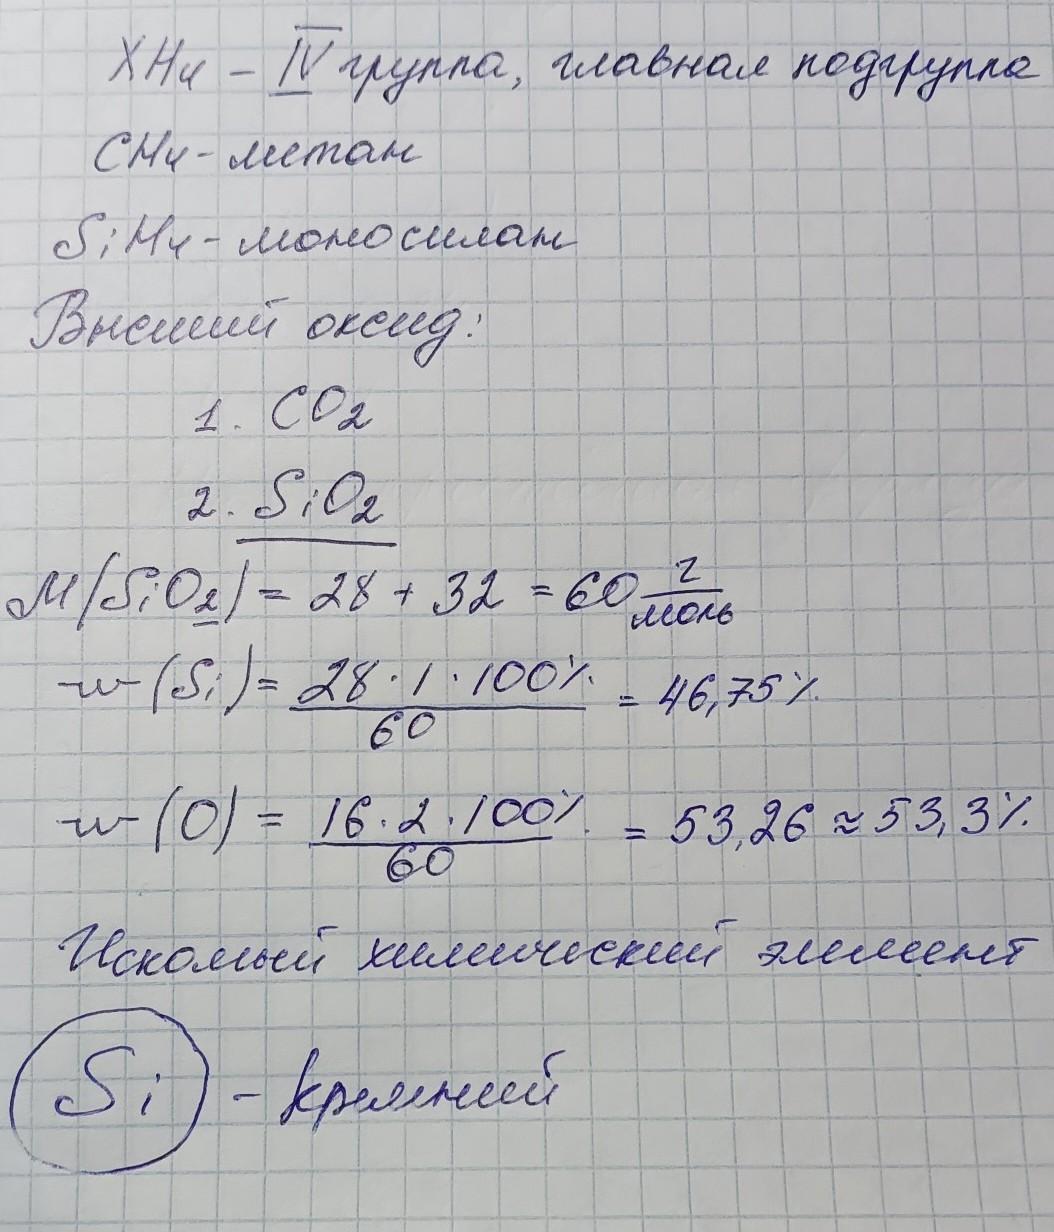 XH₄ – IV группа, главная подгруппа
CH₄ - метан
SiH₄ - моносилан
Высший оксид:
1. CO₂
2. SiO₂
M(SiO₂) = 28 + 32 = 60 г/моль
w(Si) = 28 · 1 · 100% / 60 = 46,75%
w(O) = 16 · 2 · 100% / 60 = 53,26 ≈ 53,3%
Искомый химический элемент
Si - кремний